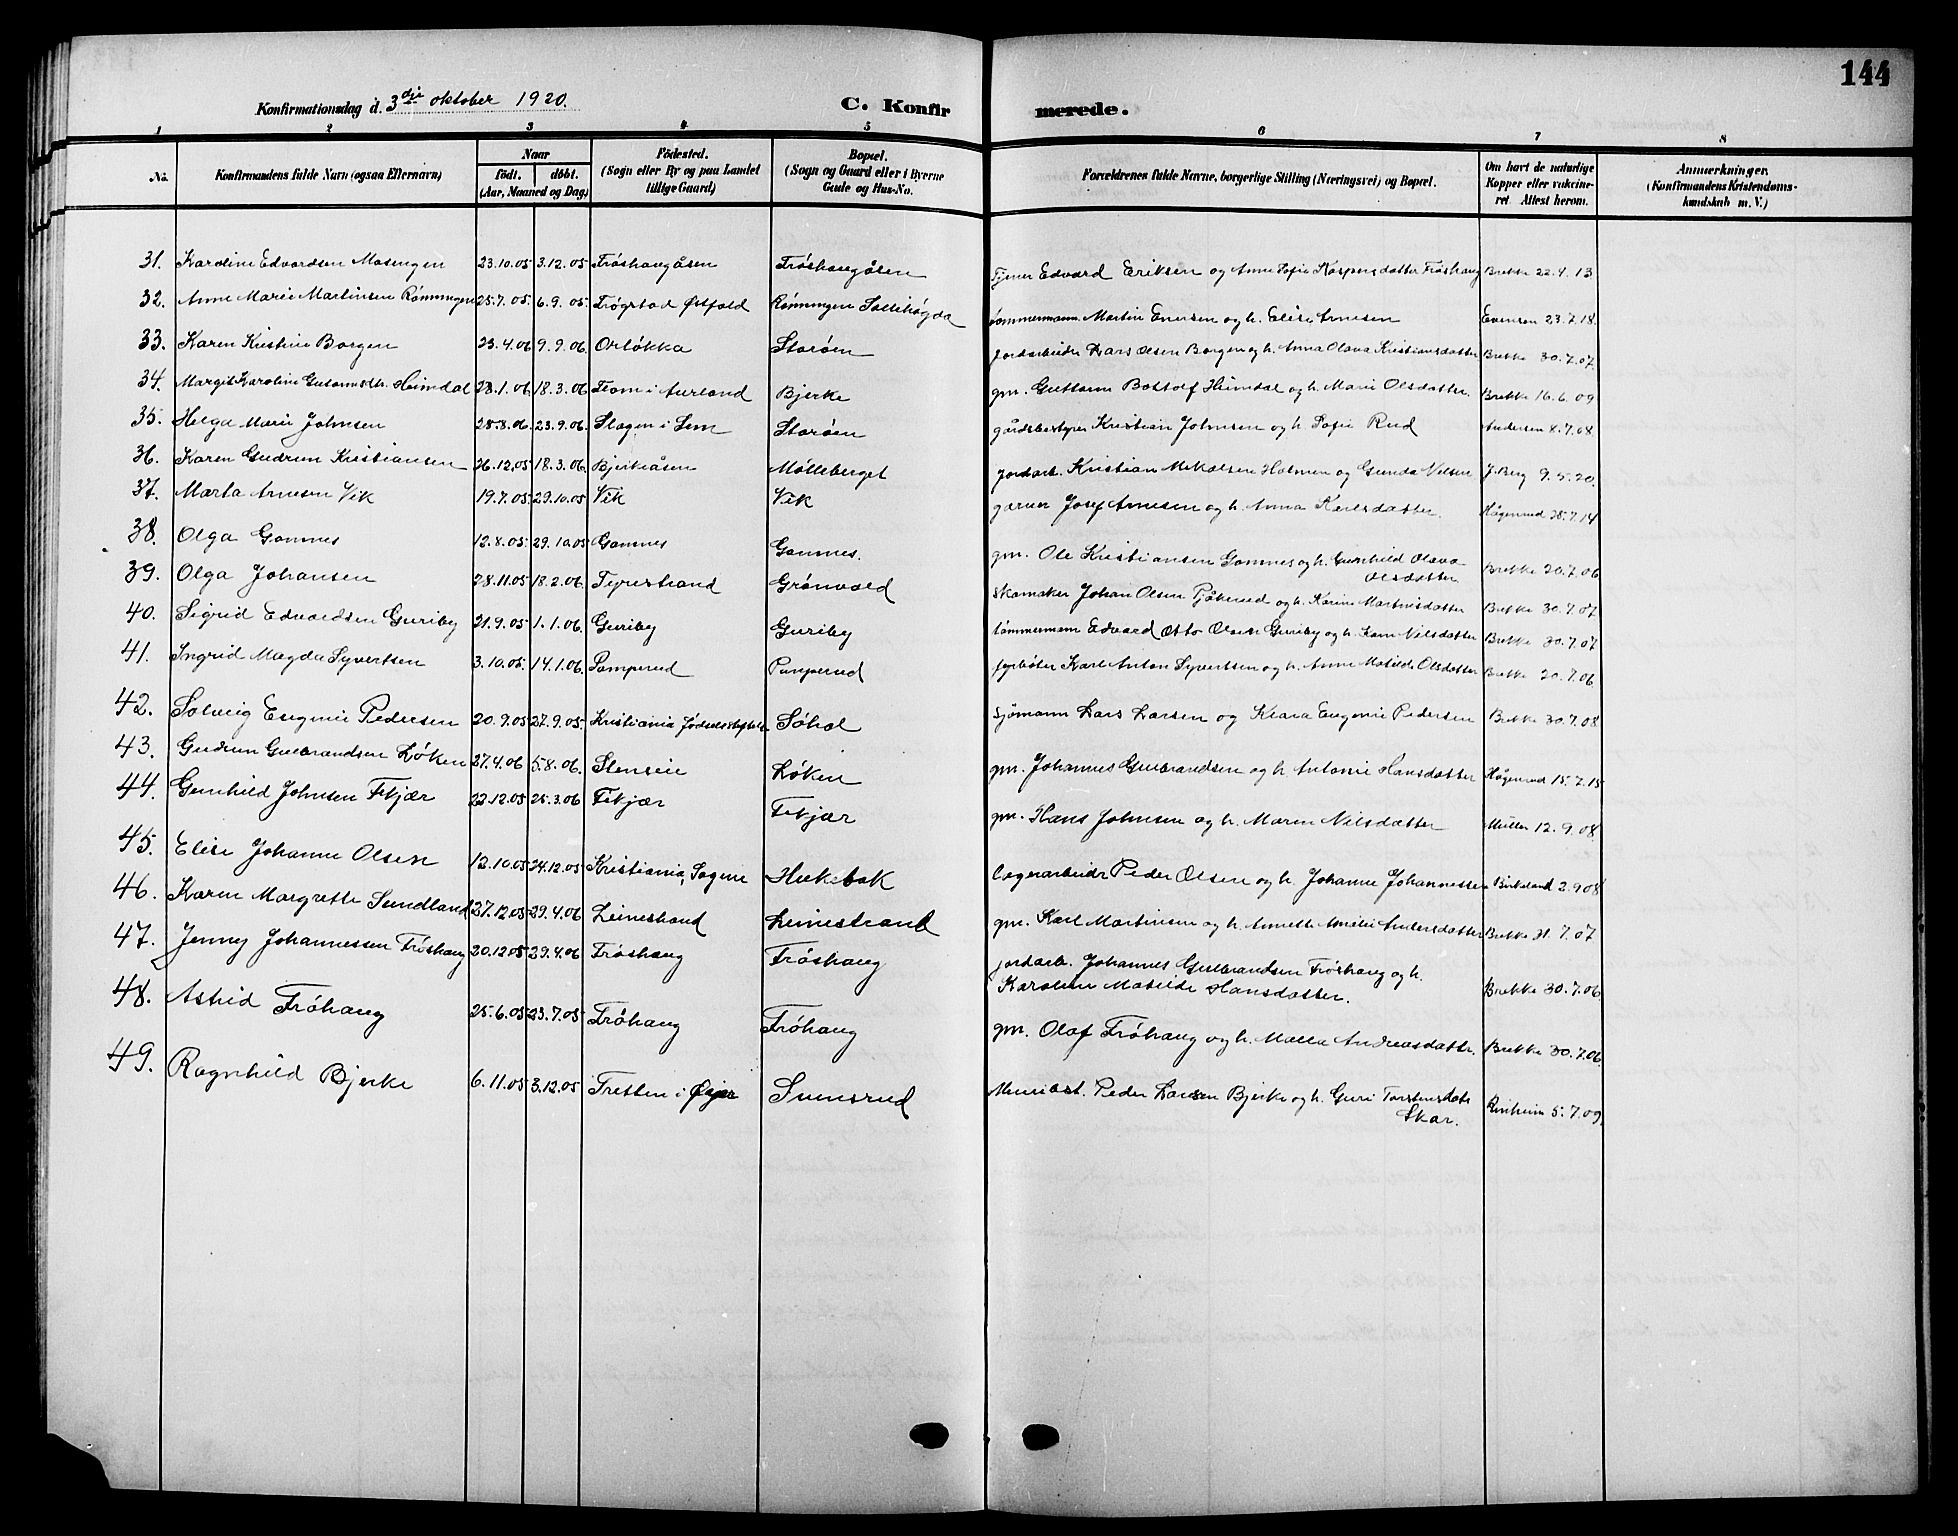 144
Konfirmationsdag d. 3die oktober 1920.
C. Konfir merede.
1 2 3 4 5 6 7 8
No. Konfirmandens fulde Navn (ogsaa Efternavn) Naar födt. döbt. (Aar, Maaned og Dag) Födested. (Sogn eller By og paa Landet tillige Gaard) Bopæl. (Sogn og Gaard eller i Byerne Gade og Hus-No. Forældrenes fulde Navne, borgerlige Stilling (Næringsvei) og Bopæl. Om havt de naturlige Kopper eller vakcineret Attest herom. Anmærkninger. (Konfirmandens Kristendomskundskab m. V.)
31. Karoline Edvardsen Mosengen 23.10.05 3.12.05 Fröshaugåsen Fröshaugåsen Tjener Edvard Eriksen og Anne Sofie Kaspersdatter Fröshaug Brekke 22.4.13
32. Anne Marie Martinsen Rønningen 25.7.05. 6.9.05. Trögstad Østfold Rønningen Sollihögda tömmermann Martin Enersen og h. Elise Arnesen Evensen 23.7.18.
33. Karen Kristine Borgen 23.4.06 9.9.06 Orlökka Storöen jordarbeider Lars Olsen Borgen og h. Anna Olava Kristiansdatter Brekke 30.7.07
34. Margit Karoline Guttormsdtr. Heimdal 28.1.06 18.3.06 Flom i Aurland Bjerke gm. Guttorm Bottolf Heimdal og h. Marie Olsdatter. Brekke 16.6.09
35. Helga Marie Johnsen 28.8.06. 23.9.06 Slagen i Sem Storöen gårdsbestyrer Kristian Johnsen og h. Sofie Rud Andersen 8.7.08.
36. Karen Gudrun Kristiansen 26.12.05 18.3.06. Bjerkeåsen Mölleberget jordarb. Kristian Mikalsen Holmen og Gunda Nilsen J. Berg 9.5.20.
37. Marta Arnesen Vik 19.7.05 29.10.05 Vik Vik garver Josef Arnesen og h. Anna Karlsdatter. Hågenrud 25.7.14
38. Olga Gomnes 12.8.05. 29.10.05 Gomnes Gomnes. gm. Ole Kristiansen Gomnes og h. Gunhild Olava Olsdatter Brekke 20.7.06
39. Olga Johansen 28.11.05 18.2.06. Tyristrand Grönvold Skomaker Johan Olsen Pjåkerud og h. Karine Martinsdatter Brekke 30.7.07
40. Sigrid Edvardsen Guriby 21.9.05 1.1.06. Guriby Guriby tömmermann Edvard Otto Olsen Guriby og h. Karn Nilsdatter Brekke 30.7.07
41. Ingrid Magda Syvertsen 3.10.05. 14.1.06. Pamperud Pamperud fyrböter Karl Anton Syvertsen og h. Anne Matilde Olsdatter Brekke 20.7.06
42. Solveig Eugenie Pedersen 20.9.05 27.9.05. Kristiania Födselsstiftelse Söhol Sjömann Lars Larsen og Klara Eugenie Pedersen Brekke 30.7.08
43. Gudrun Gulbrandsen Löken 27.4.06 5.8.06. Stenseie Löken gm. Johannes Gulbrandsen og h. Antonie Hansdatter Hågenrud 15.7.15
44. Gunhild Johnsen Fekjær 22.12.05 25.3.06 Fekjær Fekjær gm. Hans Johnsen og h. Maren Nilsdatter Müller 12.9.08
45. Elise Johanne Olsen 12.10.05 24.12.05 Kristiania, Sagene Hukebak lagerarbeider Peder Olsen og h. Johanne Johannessen Birkeland 2.9.08
46. Karen Margrette Sundland 27.12.05 29.4.06 Leinestrand Leinestrand gm. Karl Martinsen og h. Annette Amalie Andersdatter Brekke 21.7.07
47. Jenny Johannessen Fröshaug 20.12.05 29.4.06 Fröshaug Fröshaug jordarb. Johannes Gulbrandsen Fröshaug og h. Karoline Matilde Hansdatter. Brekke 30.7.06
48. Astrid Fröhaug 25.6.05 23.7.05 Fröhaug Fröhaug gm. Olaf Fröhaug og h. Malla Andreasdatter. Brekke 30.7.06
49. Ragnhild Bjerke 6.11.05 3.12.05 Tretten i Øyer Svensrud Peder Larsen Bjerke og h. Guri Torstensdatter Skar. 5.7.09.